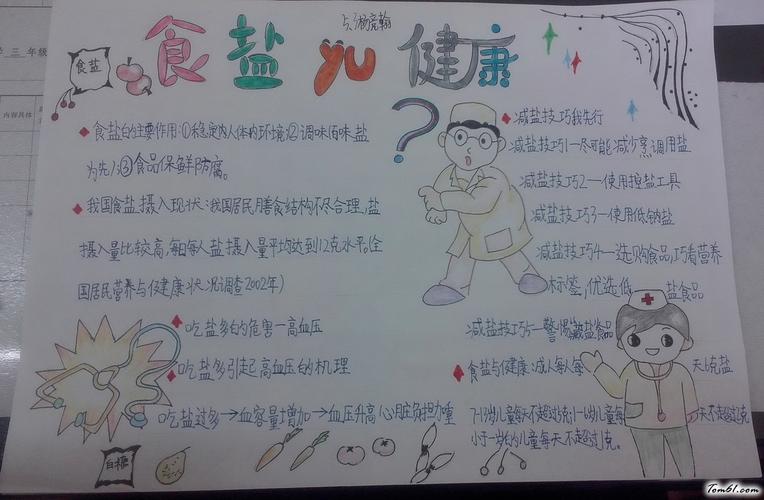 三年级
内容具体
五、3杨亮翰
食盐yu健康
食盐
食盐的主要作用:①稳定内人体内环境;②调味(百味盐
为先);③食品保鲜防腐。
我国食盐摄入现状:我国居民膳食结构不尽合理,盐
摄入量比较高,每日每人盐摄入量平均达到12克水平。(全
国居民营养与健康状况调查2002年)
吃盐多的危害—高血压
吃盐多引起高血压的机理
吃盐过多→血容量增加→血压升高心脏负担加重
白糖
减盐技巧我先行
减盐技巧1—尽可能减少烹调用盐
减盐技巧2—使用控盐工具
减盐技巧3—使用低钠盐
减盐技巧4—选购食品,巧看营养
标签,优选低 盐食品
减盐技巧5—警惕藏盐食品
食盐与健康:成人每人每 天6克盐
7-13岁儿童每天不超过5克;1-6岁儿童每 天不超过3克
小于一岁的儿童每天不超过1克。
Tom61.com